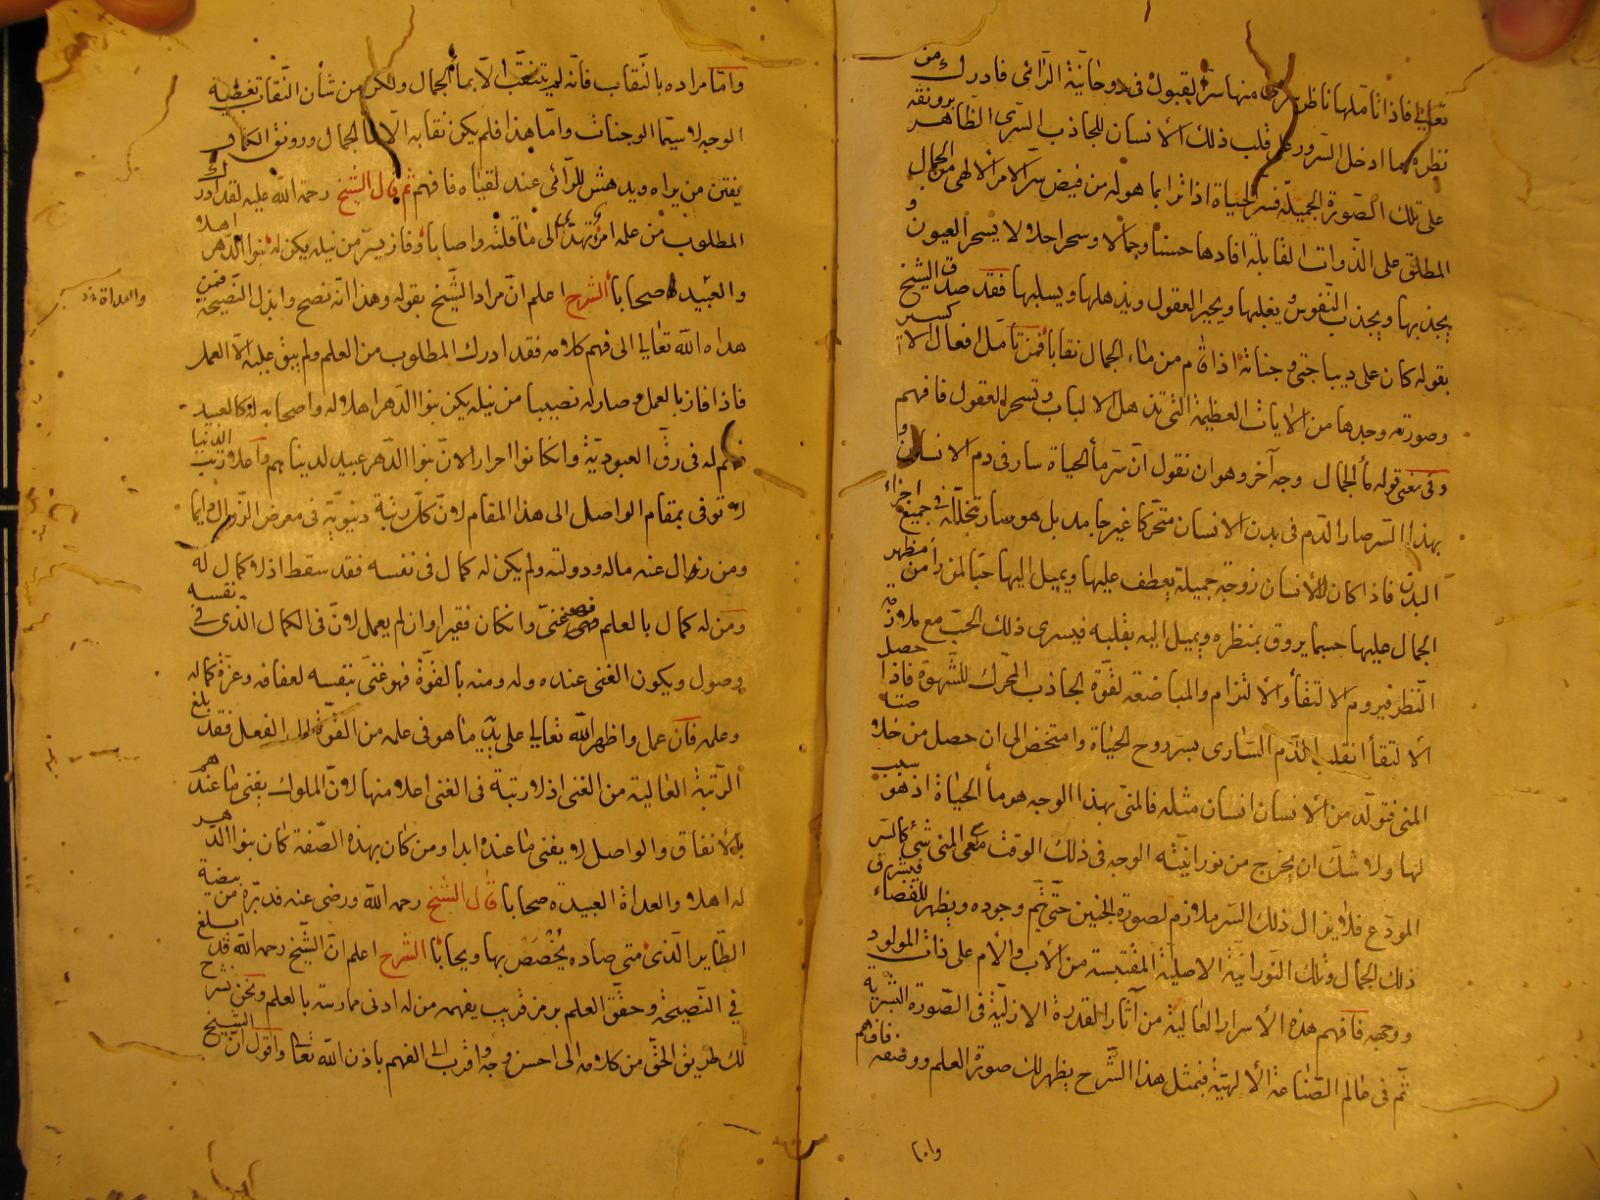 تعالى فاذا تاملها ناظر سرى منها سر القبول فى روحانية الرائى فادرك من
نظره ما ادخل السرور على قلب ذلك الانسان للجاذب السرى الظاهر برونقه
على تلك الصورة الجميلة فسر الحياة اذا ترا بما هو له من فيض سر الامر الالهى من الجمال
المطلق على الذوات القابلة افادها حسنا وجمالا وسحرا حلالا يسحر العيون و
يجذبها ويجذب النفوس يغلبها ويحير العقول ويذهلها ويسلبها فقد صدق الشيخ
بقوله كان على ديباجتى وجناته اذا قام من ماء الجمال نقابا فمن تامل افعال الاكسير
وصورته وجدها من الايات العظيمة التى تذهل الالباب وتسحر العقول فافهم
وفى معنى قوله ماء الجمال وجه آخر وهو ان نقول ان سر ماء الحياة سار فى دم الانسان و
بهذا السر صار الدم فى بدن الانسان متحركا غير جامد بل هو سار بتخلله فى جميع اجزاء
البدن فاذا كان للانسان زوجة جميلة يعطف عليها ويميل اليها حبا لمن رأ من مظهر
الجمال عليها حبيما يروق بمنظره ويميل اليه بقلبه فيسرى ذلك الحب مع ملاوذة
النظر فيروم الالتقاء والالتزام والمباضعة لقوة الجاذب المحرك للشهوة فاذا حصل
الالتقاء انقلب الدم السارى بسر روح الحياة وامتخض الى ان حصل من خلاصته
المنى فتولد من الانسان انسان مثله فالمنى بهذا الوجه هو ماء الحياة اذ هو سبب
لها ولا شك ان يخرج من نورانيته الوجه فى ذلك الوقت مع المنى شئ كالسر
المودع فلا يزال ذلك السر ملازم لصورة الجنين حتى تم وجوده ويظهر للفضاء فيشرق
ذلك الجمال وتلك النورانية الاصلية المقتبسة من الاب والام على ذات المولود
ووجهه فافهم هذه الاسرار العالية من آثار القدرة الازلية فى الصورة البشرية
ثم فى عالم الصناعة الالهية فبمثل هذا الشرح يظهر لك صورة العلم ووضعه فافهم
واما
واما مراده بالنقاب فانه لم يتنقب الا بماء الجمال ولكن من شأن النقاب تغطية
الوجه لا سيما الوجنات واما هذا فلم يكن نقابه الا ماء الجمال ورونق الكمال
يفتن من يراه ويدهش للرائى عند لقياه فافهم ثم قال الشيخ رحمة الله عليه لقد ادرك
المطلوب من علم امرئ تهدى الى ما قلته واصابا وفاز يسر من نيله يكن له بنوا الدهر اهلا
والعبيد صحابا الشرح اعلم ان مراد الشيخ بقوله وهذا انه نصح وابذل النصيحة فمن
والعداة
هداه الله تعالى الى فهم كلامه فقد ادرك المطلوب من العلم ولم يبق عليه الا العمل
فاذا فاز بالعمل وصار له نصيبا من نيله يكن بنوا الدهر اهلا له واصحابه او كالعبيد
فهم له فى رق العبودية وان كانوا احرار لان بنوا الدهر عبيد لدينا هم واعلا رتب الدنيا
لا توفى بمقام الواصل الى هذا المقام لان كل رتبة دنيوية فى معرض الزوال دائما
ومن زال عنه ماله ودولته ولم يكن له كمال فى نفسه فقد سقط اذ لا كمال له
ومن له كمال بالعلم فهو غنى وان كان فقيرا وان لم يعمل لان فى الكمال الذى فى نفسه
وصول ويكون الغنى عنده وله ومنه بالقوة فهو غنى بنفسه لعفافه وعزة كماله
وعلمه فان عمل واظهر الله تعالى على يديه ما هو فى علمه من القوة الى الفعل فقد بلغ
الرتبة العالية من الغنى اذ لا رتبة فى الغنى اعلا منها لان الملوك يفنى ما عندهم
بالانفاق والواصل لا يفنى ما عنده ابدا ومن كان بهذه الصفة كان بنوا الدهر
له اهلا والعداة العبيد صحابا قال الشيخ رحمه الله ورضى عنه فدبره من بيضة
الطاير الذى متى صاده يخصص بها ويحابا الشرح اعلم ان الشيخ رحمه الله قد ابلغ
فى النصيحة وحقق العلم برمز قريب يفهمه من له ادنى ممارسة بالعلم ونحن نشرح
لك طريق الحق من كلامه الى احسن وجه واقرب الى الفهم باذن الله تعالى واقول ان الشيخ